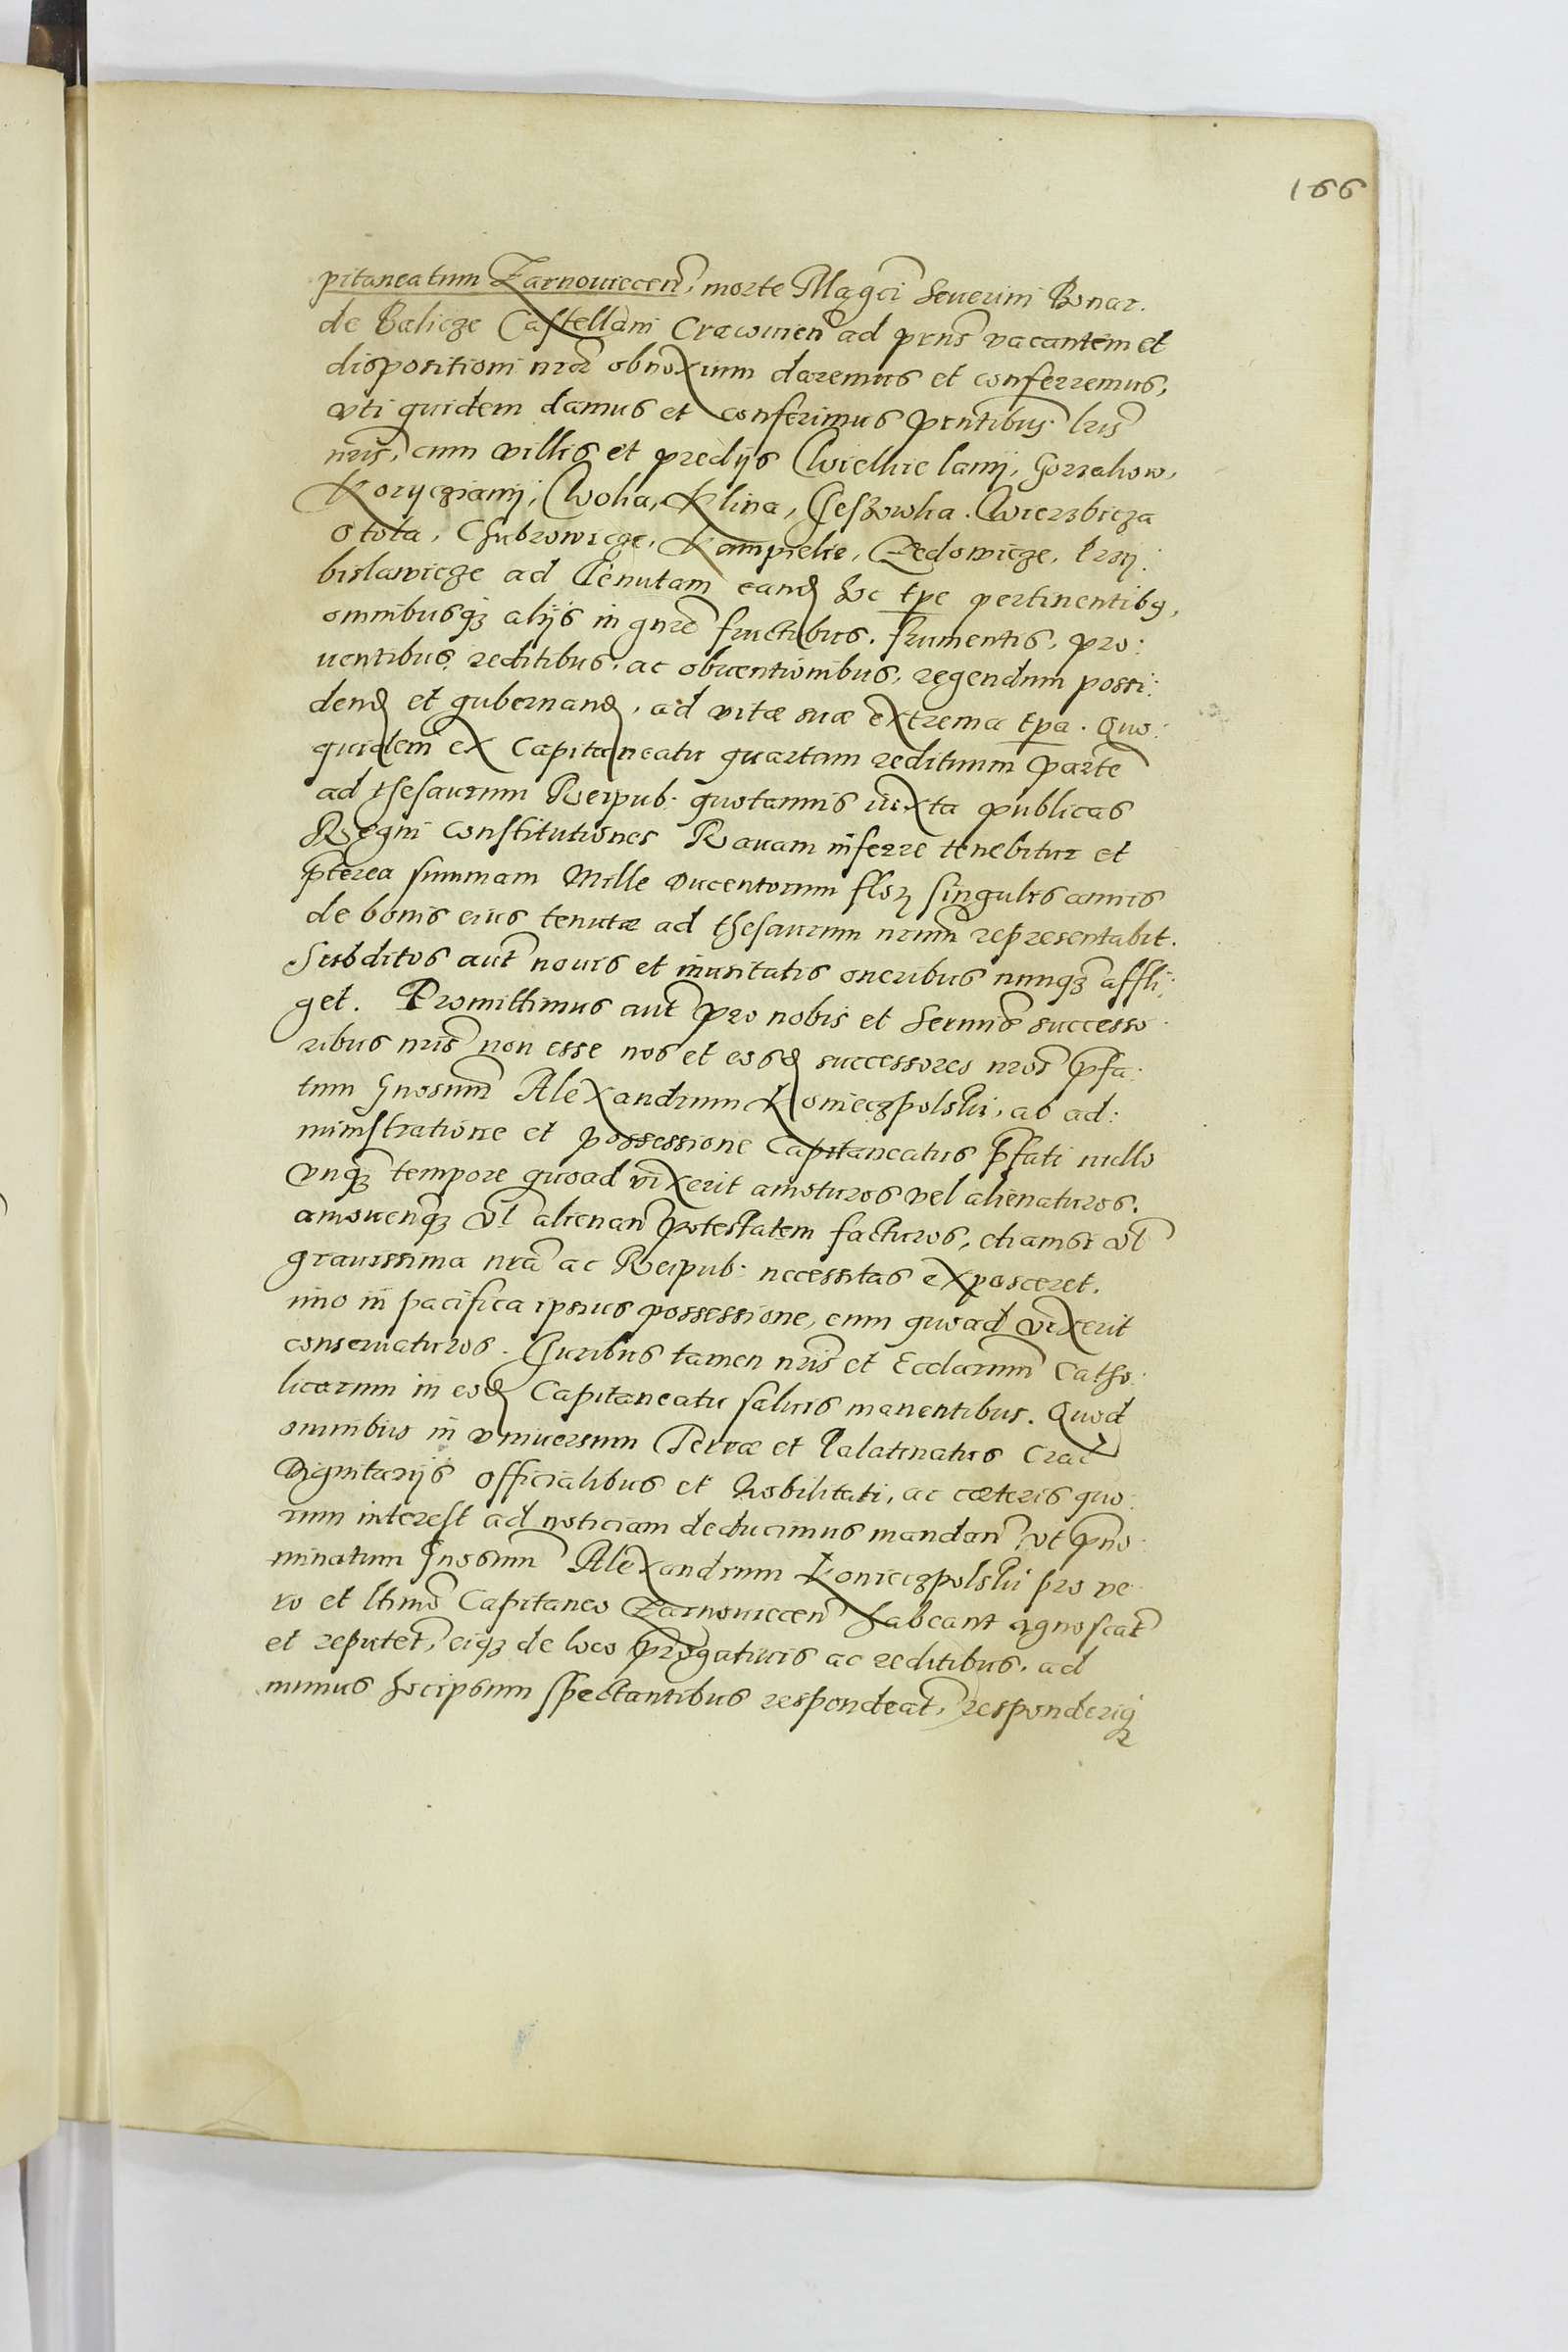 166
pitaneatum Zarnouiecen̄, morte Magc̄i Seuerini Bonar.
de Balicze Castellani Cracouien̄ ad prn̄s vacantem et
dispositioni nr̄ae obnoxium daremus et conferremus,
vti quidem damus et conferimus prn̄tibus lr̄is
nr̄is, cum villis et predijs Wielkie lanÿ, Gorzakow,
Koryczianÿ, Wolia, Klina, Jeszowka. Wierzbicza
Otola, Chubrowicze, Kampielie, Zedowicze, Przÿ:
bislawicze ad Tenutam eand hoc tp̄e pertinentibus,
omnibusq3 alijs in gnr̄e fructibus. frumentis, pro:
uentibus, reditibus, ac obuentionibus, regendum possi:
dend et gubernand, ad vitæ suæ extrema tp̄a. Quo:
quidem ex Capitaneatu quartam redituum parte̅
ad thesaurum Reipub: quotannis iuxta publicas
Regni Constitutiones Rauam inferre tenebitur et
pr̄terea summam Mille ducentorum flor singulis annis
de bonis eius tenutæ ad thesaurum nr̄um representabit.
Subditos aut̄ nouis et inusitatis oneribus nunq3 affli:
get. Promittimus aut̄ pro nobis et Sermis̄ successo:
ribus nr̄is non esse nos et eosd successores nr̄os p̄fa:
tum Gnosum̄ Alexandrum Konieczpolski, ab ad:
ministratione et possessione Capitaneatus p̄fati nullo
vnq3 tempore quoad vixerit amoturos vel alienaturos.
amouenq3 vl̄ alienan̄ potestatem facturos, etiamsi vl̄
grauissima nr̄a ac Reipub: necessitas exposceret.
imo in pacifica ipsius possessione, eum quoad vixerit
conseruaturos. Juribus tamen nr̄is et Ecclarum̄ Catho:
licarum in eod Capitaneatu saluis manentibus. Quod
omnibus in vniuersum Terræ et Palatinatus Crac̄
Dignitarijs Officialibus et Nobilitati, ac cæteris quo:
rum interest ad noticiam deducimus mandan̄, vt p̄no:
minatum Gnosum̄ Alexandrum Konieczpolski pro ve
ro et ltimo̅ Capitaneo Zarnouiecen̄ habeant agnoscat̄
et reputet̄, eiq3 de loco prrogatiuis ac reditibus, ad
munus hocipsum spectantibus respondeat̄, responderiq3